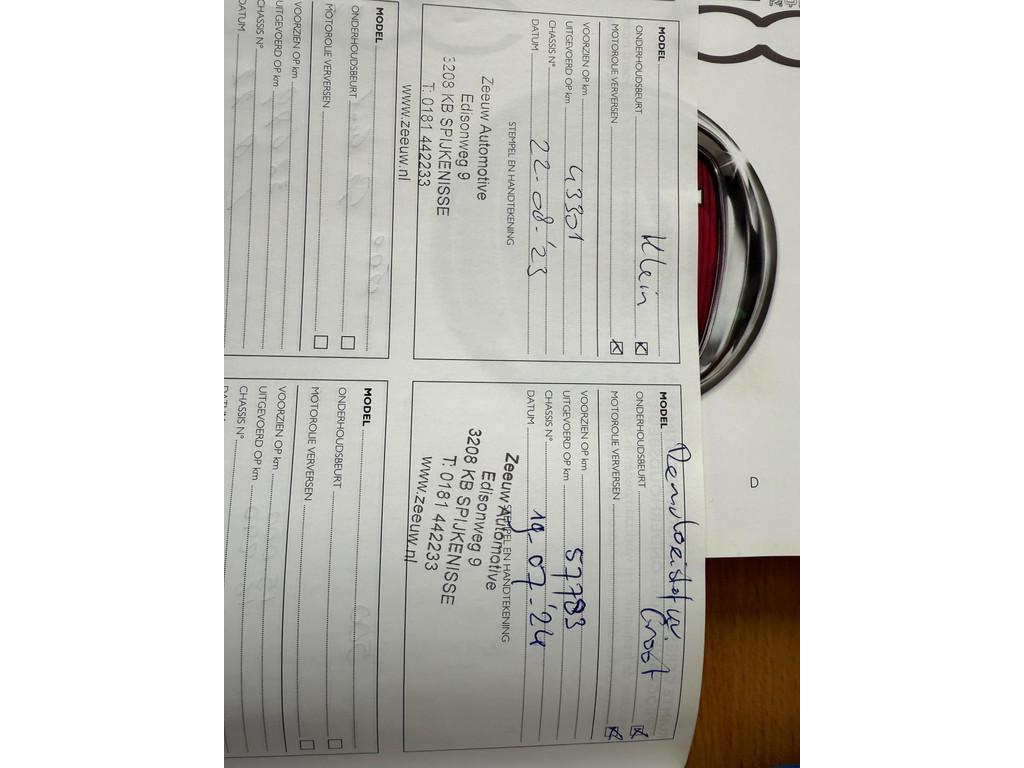 MODEL
ONDERHOUDSBEURT Klein
MOTOROLIE VERVERSEN
VOORZIEN OP km
UITGEVOERD OP km 43301
CHASSIS N°
DATUM 22-08-'23
STEMPEL EN HANDTEKENING
Zeeuw Automotive
Edisonweg 9
3208 KB SPIJKENISSE
T: 0181 442233
www.zeeuw.nl
MODEL Remvloeistof vv.
ONDERHOUDSBEURT Groot
MOTOROLIE VERVERSEN
VOORZIEN OP km
UITGEVOERD OP km 57783
CHASSIS N°
DATUM 19-07-'24
STEMPEL EN HANDTEKENING
Zeeuw Automotive
Edisonweg 9
3208 KB SPIJKENISSE
T: 0181 442233
www.zeeuw.nl
MODEL
ONDERHOUDSBEURT
MOTOROLIE VERVERSEN
VOORZIEN OP km
UITGEVOERD OP km
CHASSIS N°
DATUM
MODEL
ONDERHOUDSBEURT
MOTOROLIE VERVERSEN
VOORZIEN OP km
UITGEVOERD OP km
CHASSIS N°
DATUM
D